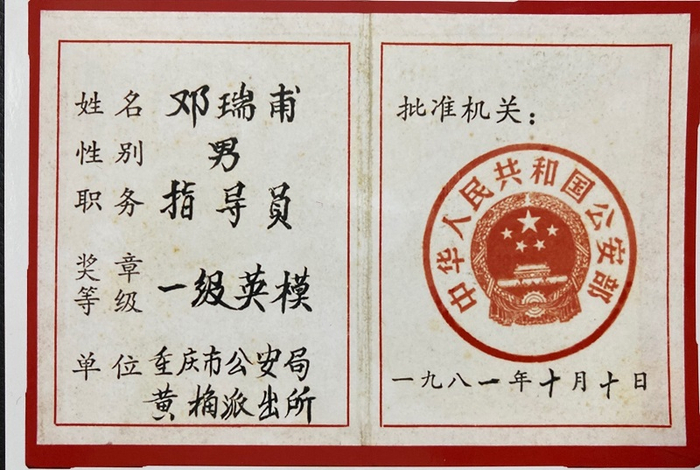 姓名 邓瑞甫
性别 男
职务 指导员
奖章
等级 一级英模
单位 重庆市公安局
黄桷派出所
批准机关:
中华人民共和国公安部
一九八一年十月十日